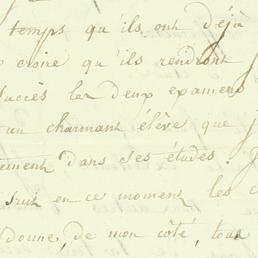 temps qu'ils ont déjà
croire qu'ils rendront
succès les deux examens
un charmant élève que j
ement dans ses études. J
suit en ce moment les c
donne, de mon côté, tous